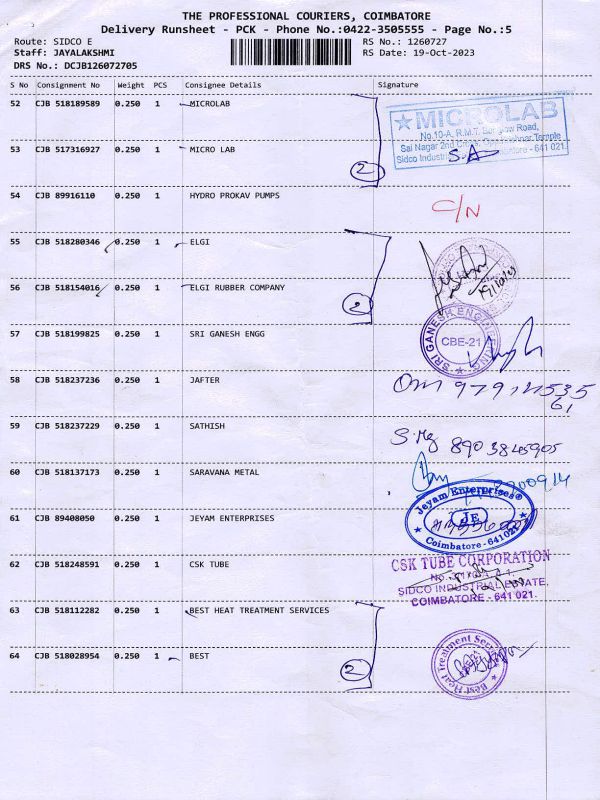 THE PROFESSIONAL COURIERS, COIMBATORE
Delivery Runsheet - PCK - Phone No.:0422-3505555 - Page No.:5
Route: SIDCO E
RS No.: 1260727
Staff: JAYALAKSHMI
RS Date: 19-Oct-2023
DRS No.: DCJB126072705
S No Consignment No Weight PCS Consignee Details Signature
52 CJB 518189589 0.250 1 MICROLAB
★ MICROLAB
No.10-A, R.M.T. Bungalow Road,
Sai Nagar 2nd Cross, Temple
Sidco Industrial Coimbatore - 641 021.
S.A
53 CJB 517316927 0.250 1 MICRO LAB
2
54 CJB 89916110 0.250 1 HYDRO PROKAV PUMPS
C/N
55 CJB 518280346 0.250 1 ELGI
19/10/23
56 CJB 518154016 0.250 1 ELGI RUBBER COMPANY
2
57 CJB 518199825 0.250 1 SRI GANESH ENGG
SRI GANESH ENGINEERING
CBE-21
58 CJB 518237236 0.250 1 JAFTER
61
59 CJB 518237229 0.250 1 SATHISH
60 CJB 518137173 0.250 1 SARAVANA METAL
61 CJB 89408050 0.250 1 JEYAM ENTERPRISES
Jeyam Enterprises®
JE
Coimbatore-641021
62 CJB 518248591 0.250 1 CSK TUBE
CSK TUBE CORPORATION
SIDCO INDUSTRIAL ESTATE,
COIMBATORE - 641 021.
63 CJB 518112282 0.250 1 BEST HEAT TREATMENT SERVICES
64 CJB 518028954 0.250 1 BEST
2
Best Heat Treatment Services